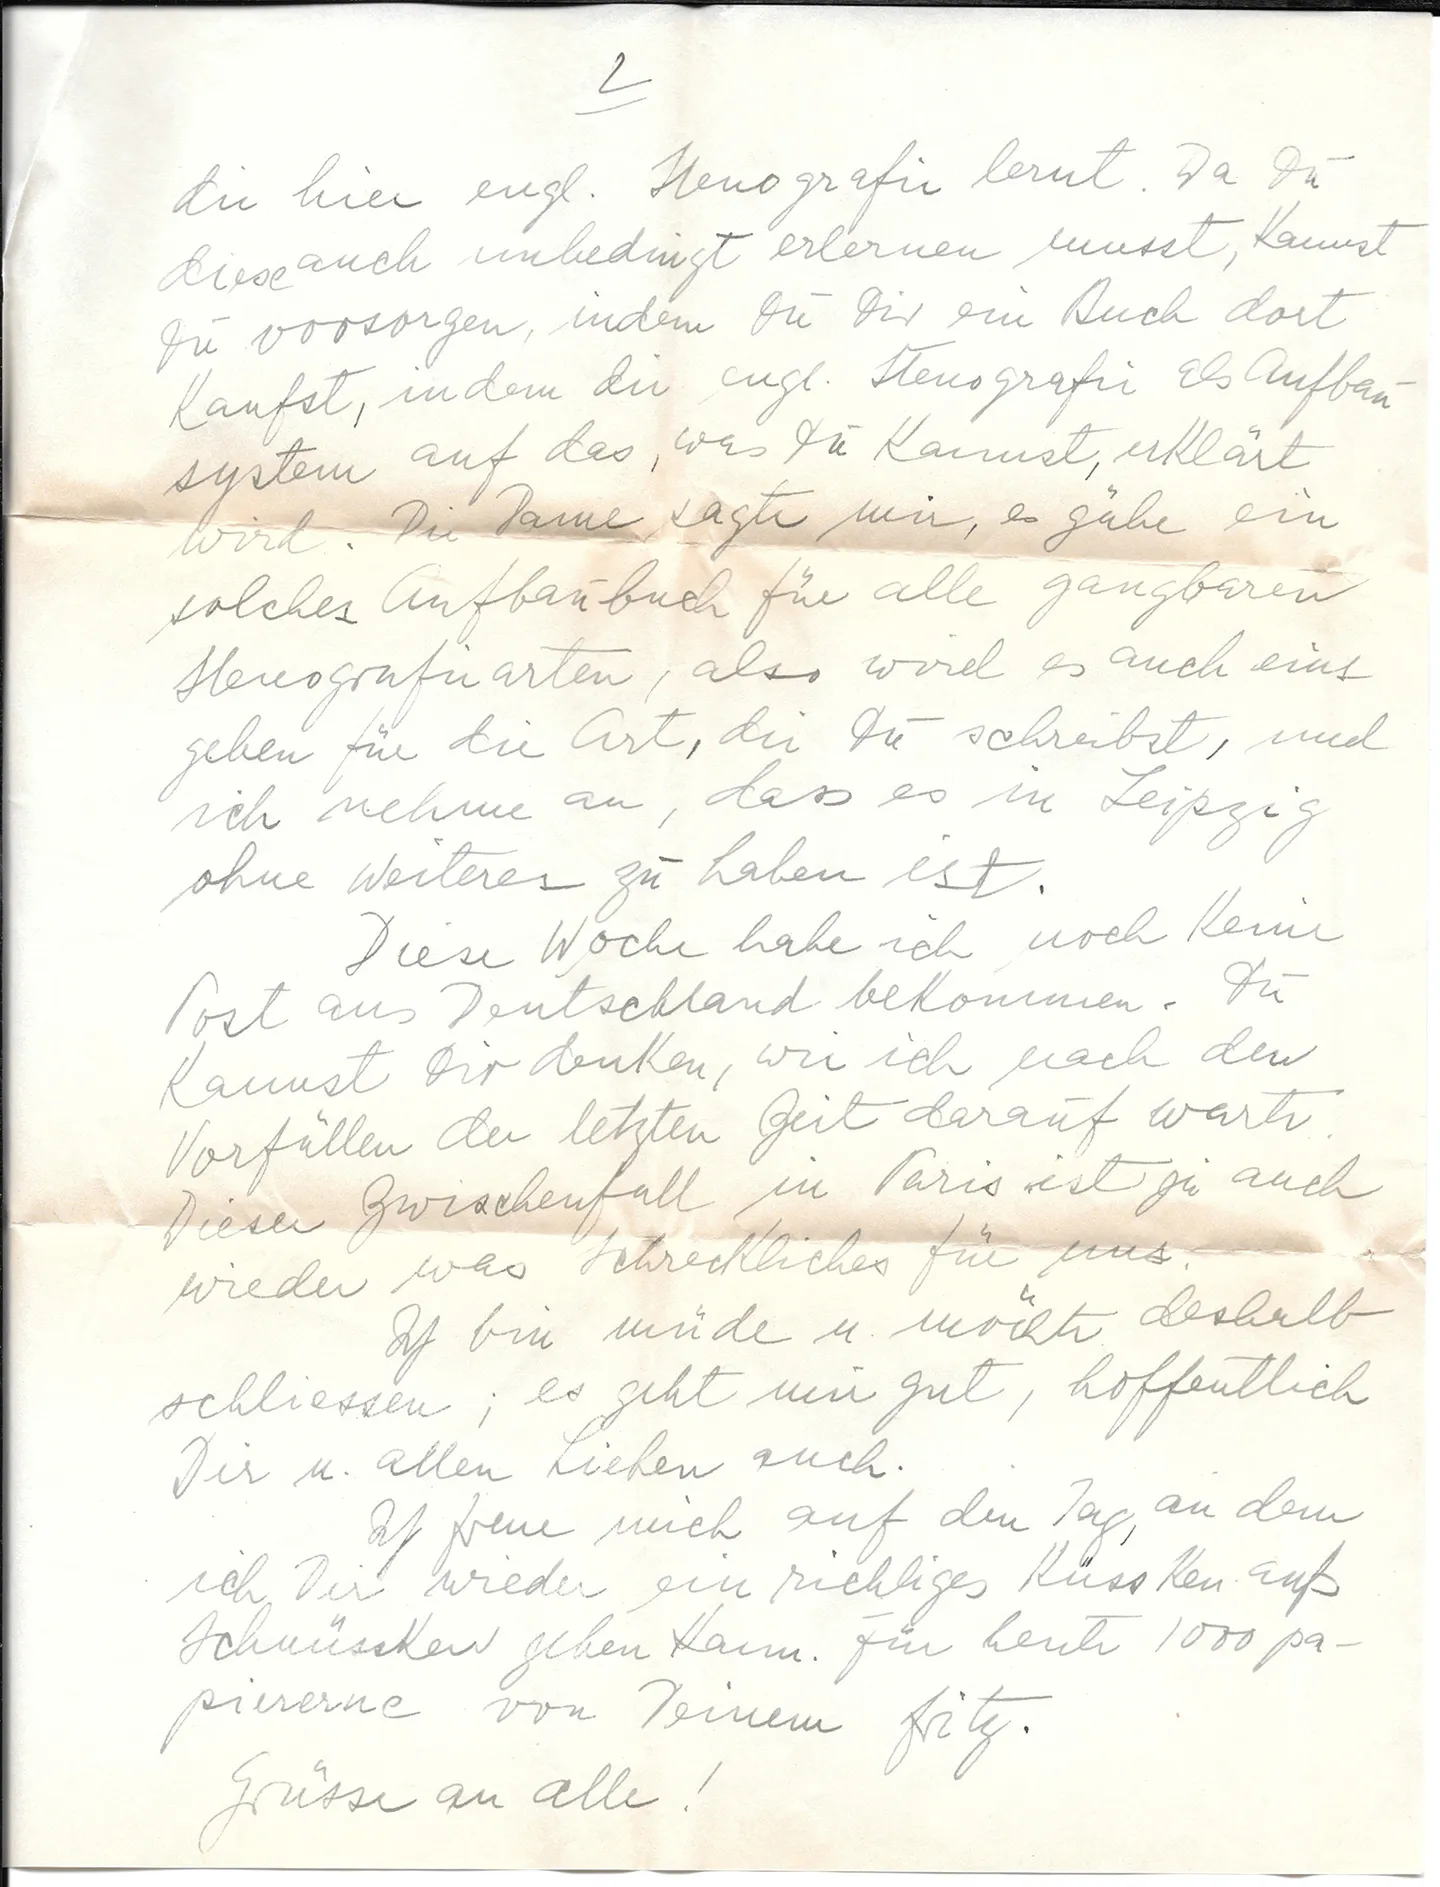 2
die hier engl. Stenografie lernt. Da Du
diese auch unbedingt erlernen musst, kannst
Du vorsorgen, indem Du Dir ein Buch dort
kaufst, indem die engl. Stenografie als Aufbau-
system auf das, was Du kannst, erklärt
wird. Die Dame sagte mir, es gäbe ein
solches Aufbaubuch für alle gangbaren
Stenografiearten, also wird es auch eins
geben für die Art, die Du schreibst, und
ich nehme an, dass es in Leipzig
ohne weiteres zu haben ist.
Diese Woche habe ich noch keine
Post aus Deutschland bekommen. Du
kannst Dir denken, wie ich nach den
Vorfällen der letzten Zeit darauf warte.
Dieser Zwischenfall in Paris ist ja auch
wieder was Schreckliches für uns.
Ich bin müde u. möchte deshalb
schliessen; es geht mir gut, hoffentlich
Dir u. allen Lieben auch.
Ich freue mich auf den Tag, an dem
ich Dir wieder ein richtiges Küssken aufs
Schnüssken geben kann. Für heute 1000 pa-
piererne von Deinem Fritz.
Grüsse an alle!